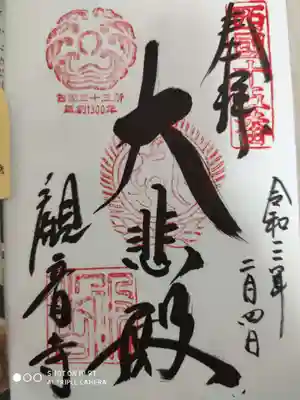 西国十五番
奉拝
令和三年
二月四日
大悲殿
西国三十三所
草創1300年
觀音寺
SHOT ON MI 9T
AI TRIPLE CAMERA